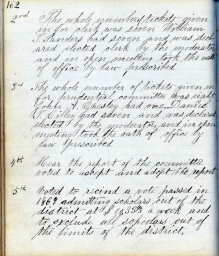 162
2nd The whole number tickets given
in for clerk was seven William
F. Sanders had seven and was decl-
ared elected clerk by the moderator
and in open meeting took the oath
of office by law prescribed
3rd The whole number of tickets given in
for prudential committee was eight
John A. Chesley had one Daniel
F. Colley had seven and was declared
elected by the moderator and in open
meeting took the oath of office by
law prescribed
4th Hear the report of the committee
voted to accept and adopt the report
5th Voted to recind a vote passed in
1869 admitting scholars out of the
district at a week and
to exclude all scholars out of
the limits of the district,